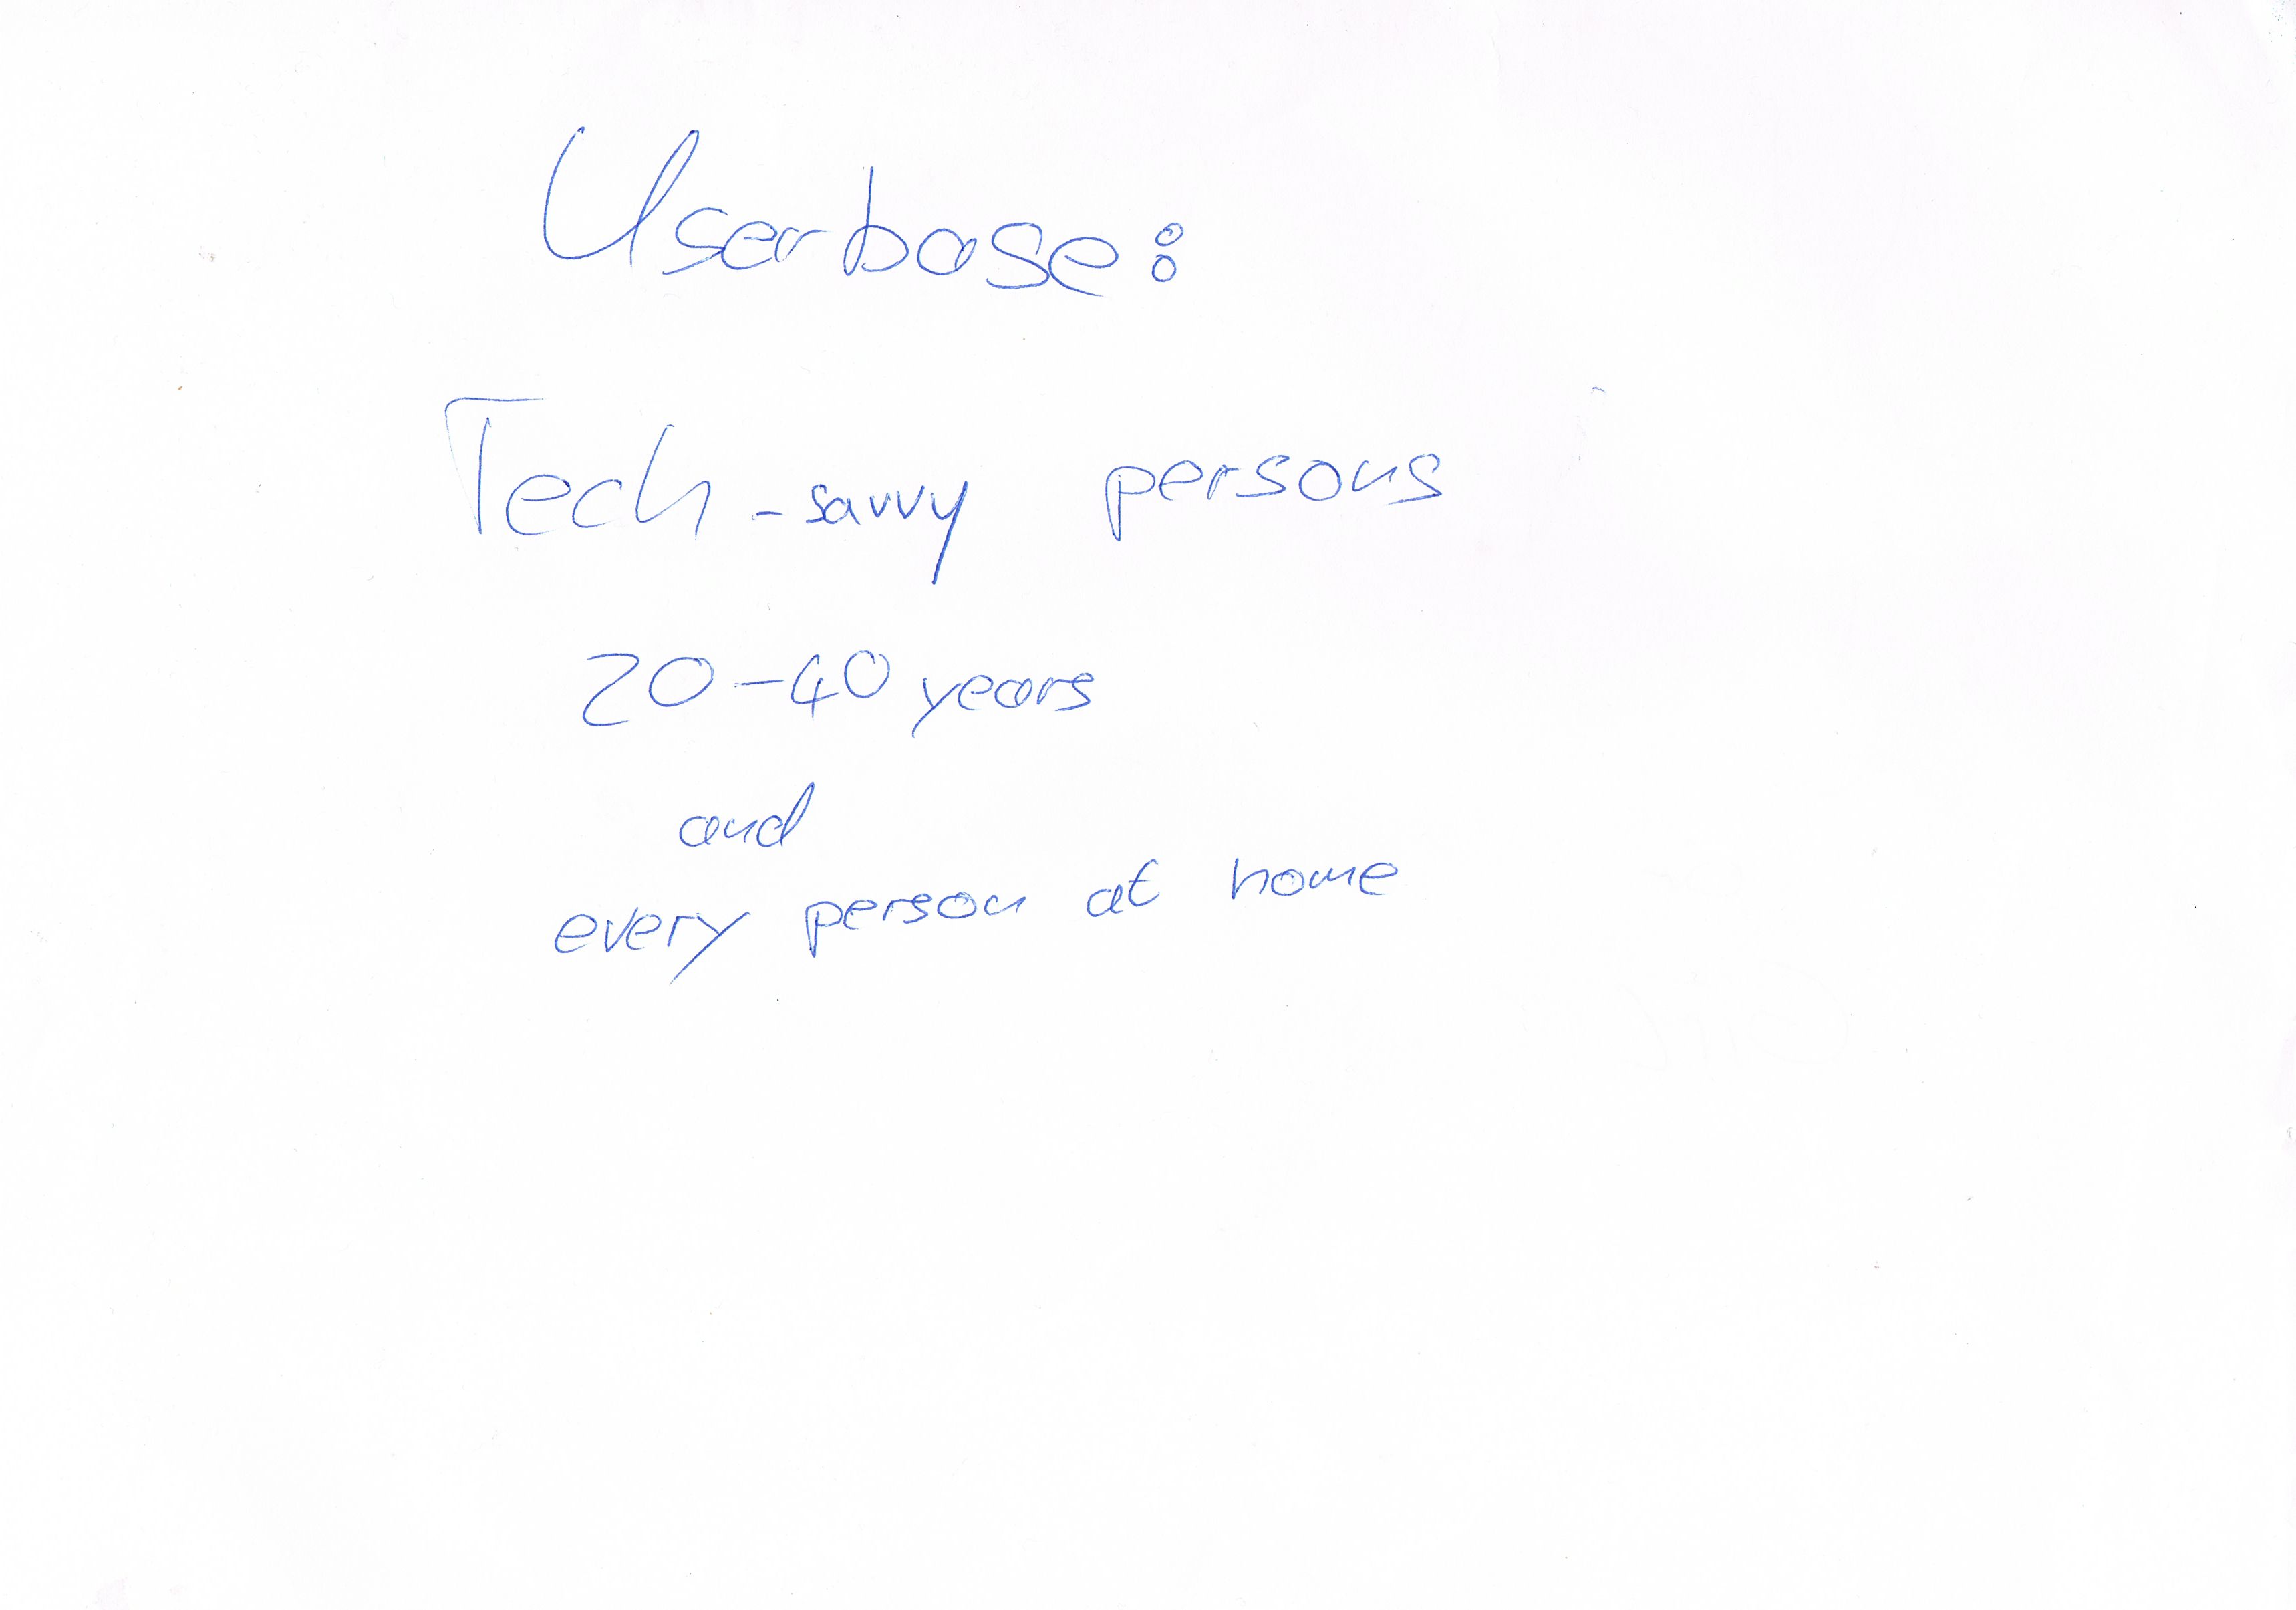 Userbase:
Tech-savvy persons
20-40 years
and
every person at home